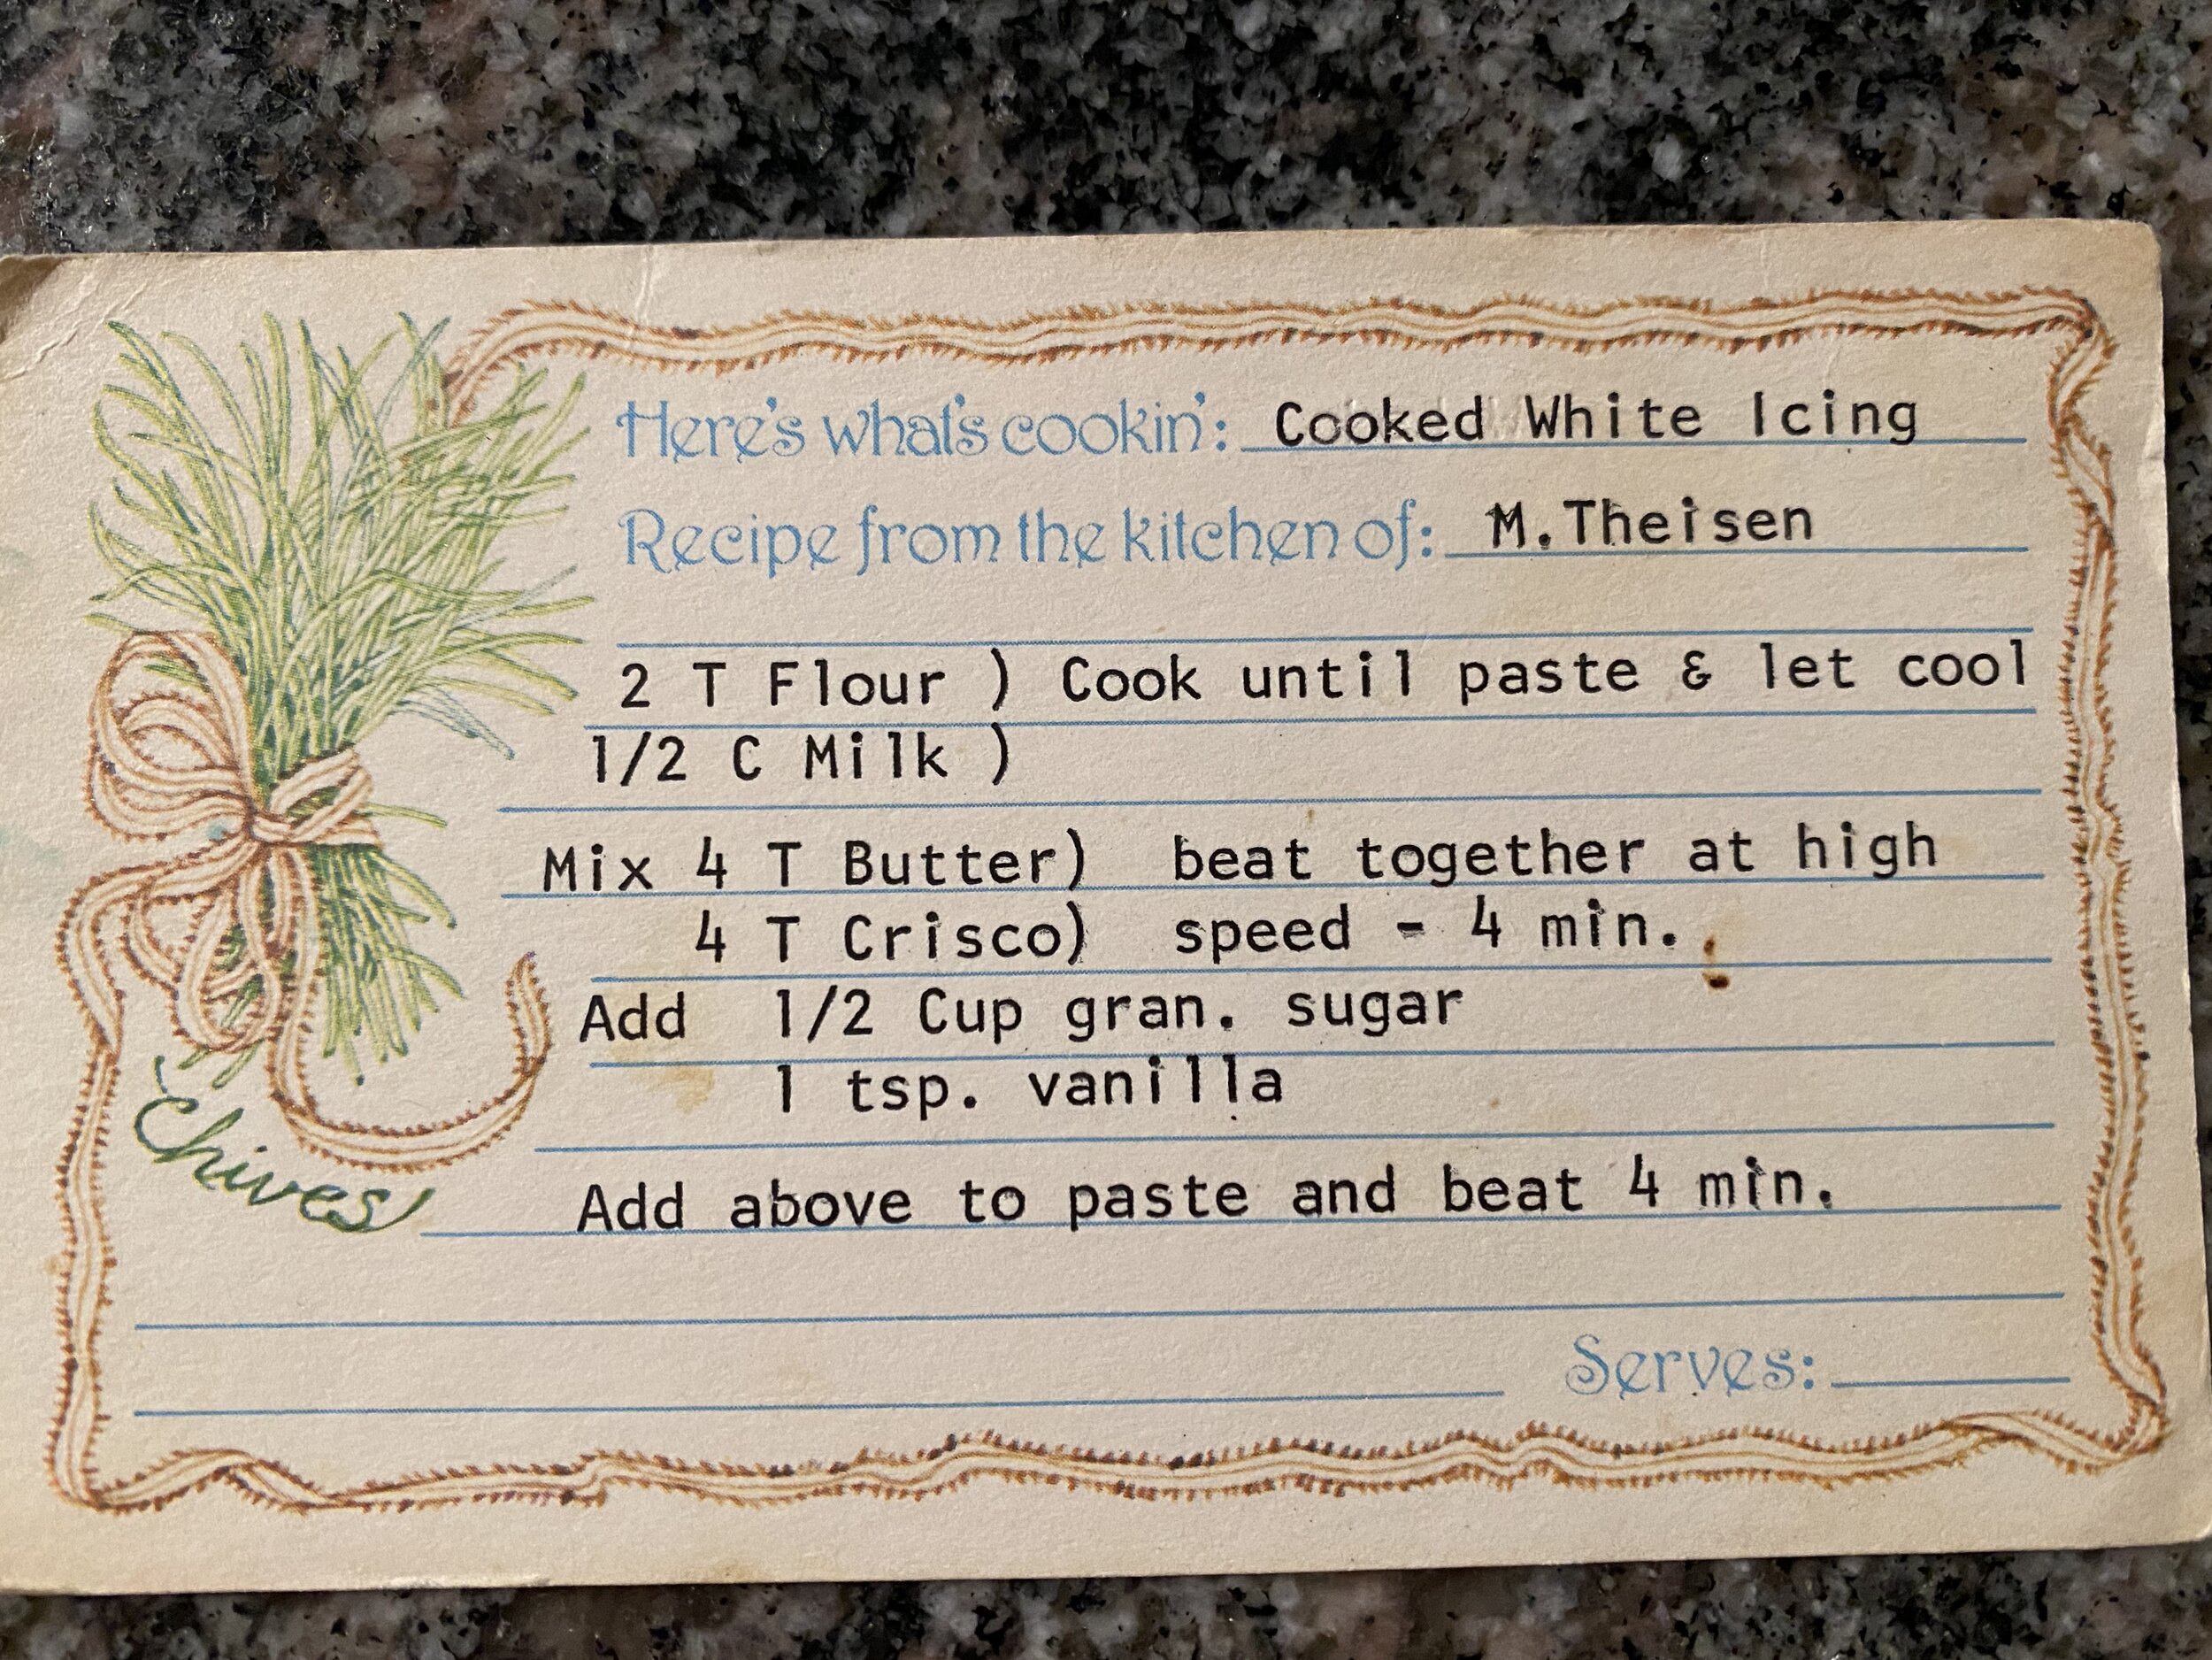 Here's what's cookin': Cooked White Icing
Recipe from the kitchen of: M.Theisen
2 T Flour ) Cook until paste & let cool
1/2 C Milk )
Mix 4 T Butter) beat together at high
4 T Crisco) speed - 4 min.
Add 1/2 Cup gran. sugar
1 tsp. vanilla
Chives
Add above to paste and beat 4 min.
Serves: